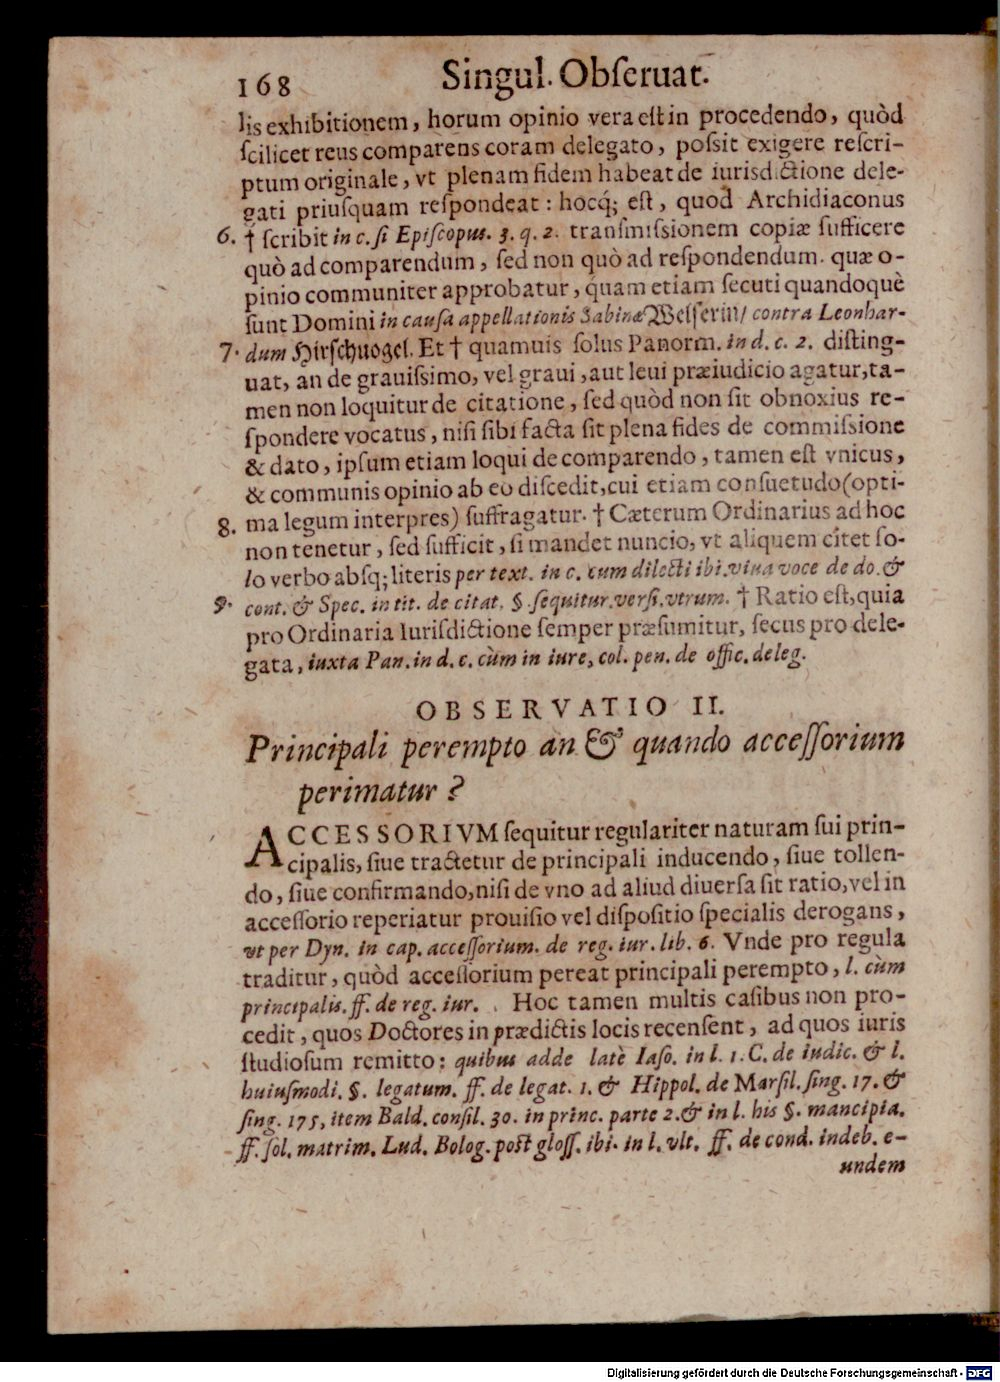 168 Singul. Obſeruat.
lis exhibitionem, horum opinio vera eſt in procedendo, quòd
ſcilicet reus comparens coram delegato, poſsit exigere reſcri-
ptum originale, vt plenam fidem habeat de iurisdictione dele-
gati priuſquam reſpondeat: hocq́; eſt, quod Archidiaconus
6. † ſcribit in c. ſi Epiſcopus. 3. q. 2. tranſmiſsionem copiæ ſufficere
quò ad comparendum, ſed non quò ad reſpondendum. quæ o-
pinio communiter approbatur, quam etiam ſecuti quandoquè
ſunt Domini in cauſa appellationis Sabinæ Welſerin/ contra Leonhar-
7. dum Hirſchuogel. Et † quamuis ſolus Panorm. in d. c. 2. diſting-
uat, an de grauiſsimo, vel graui, aut leui præiudicio agatur, ta-
men non loquitur de citatione, ſed quòd non ſit obnoxius re-
ſpondere vocatus, niſi ſibi facta ſit plena fides de commiſsione
& dato, ipſum etiam loqui de comparendo, tamen eſt vnicus,
& communis opinio ab eo diſcedit, cui etiam conſuetudo (opti-
8. ma legum interpres) ſuffragatur. † Cæterum Ordinarius ad hoc
non tenetur, ſed ſufficit, ſi mandet nuncio, vt aliquem citet ſo-
lo verbo absq; literis per text. in c. cum dilecti ibi. viua voce de do. &
9. cont. & Spec. in tit. de citat. §. ſequitur. verſi. vtrum. † Ratio eſt, quia
pro Ordinaria Iuriſdictione ſemper præſumitur, ſecus pro dele-
gata, iuxta Pan. in d. c. cùm in iure, col. pen. de offic. deleg.
OBSERVATIO II.
Principali perempto an & quando acceſſorium
perimatur?
ACCESSORIVM ſequitur regulariter naturam ſui prin-
cipalis, ſiue tractetur de principali inducendo, ſiue tollen-
do, ſiue confirmando, niſi de vno ad aliud diuerſa ſit ratio, vel in
acceſſorio reperiatur prouiſio vel diſpoſitio ſpecialis derogans,
vt per Dyn. in cap. acceſſorium. de reg. iur. lib. 6. Vnde pro regula
traditur, quòd acceſſorium pereat principali perempto, l. cùm
principalis. ff. de reg. iur. Hoc tamen multis caſibus non pro-
cedit, quos Doctores in prædictis locis recenſent, ad quos iuris
ſtudioſum remitto: quibus adde latè Iaſo. in l. 1. C. de iudic. & l.
huiuſmodi. §. legatum. ff. de legat. 1. & Hippol. de Marſil. ſing. 17. &
ſing. 175, item Bald. conſil. 30. in princ. parte 2. & in l. his §. mancipia.
ff. ſol. matrim. Lud. Bolog. poſt gloſſ. ibi. in l. vlt. ff. de cond. indeb. e-
undem
Digitalisierung gefördert durch die Deutsche Forschungsgemeinschaft - DFG